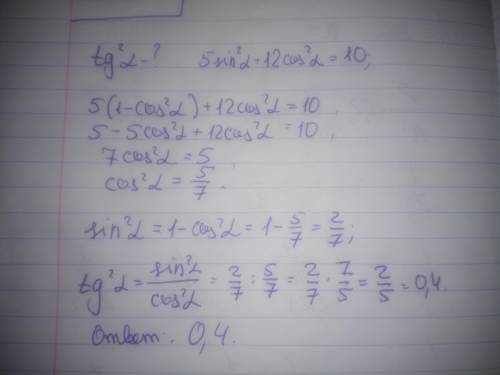 tg²α - ? 5sin²α + 12cos²α = 10;
5(1-cos²α) + 12cos²α = 10
5 - 5cos²α + 12cos²α = 10,
7cos²α = 5
cos²α = 5/7.
sin²α = 1 - cos²α = 1 - 5/7 = 2/7;
tg²α = sin²α/cos²α = 2/7 : 5/7 = 2/7 · 7/5 = 2/5 = 0,4.
Ответ: 0,4.